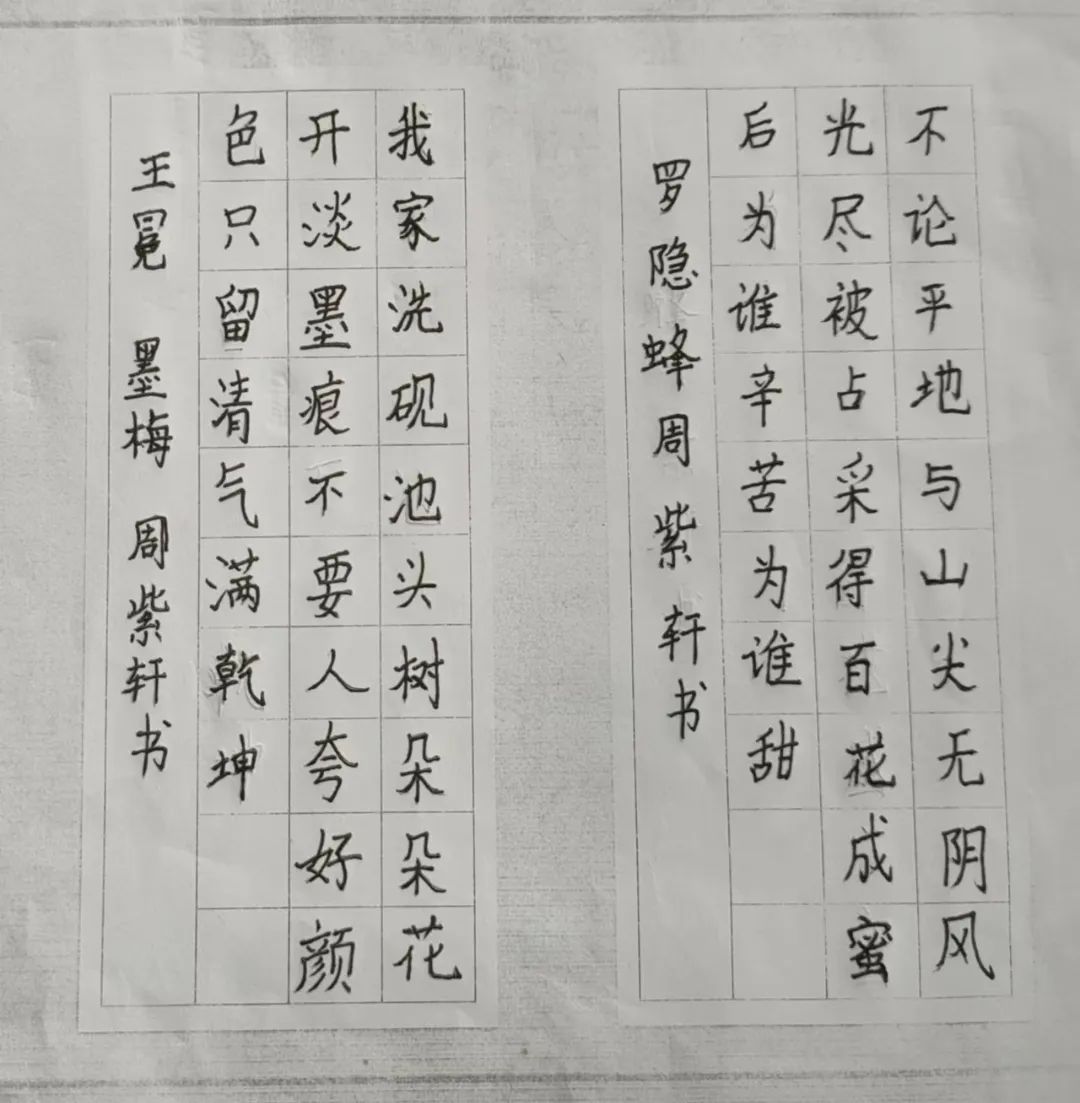 不论平地与山尖无阴风
光尽被占采得百花成蜜
后为谁辛苦为谁甜
罗隐蜂周紫轩书
我家洗砚池头树朵朵花
开淡墨痕不要人夸好颜
色只留清气满乾坤
王冕 墨梅 周紫轩书